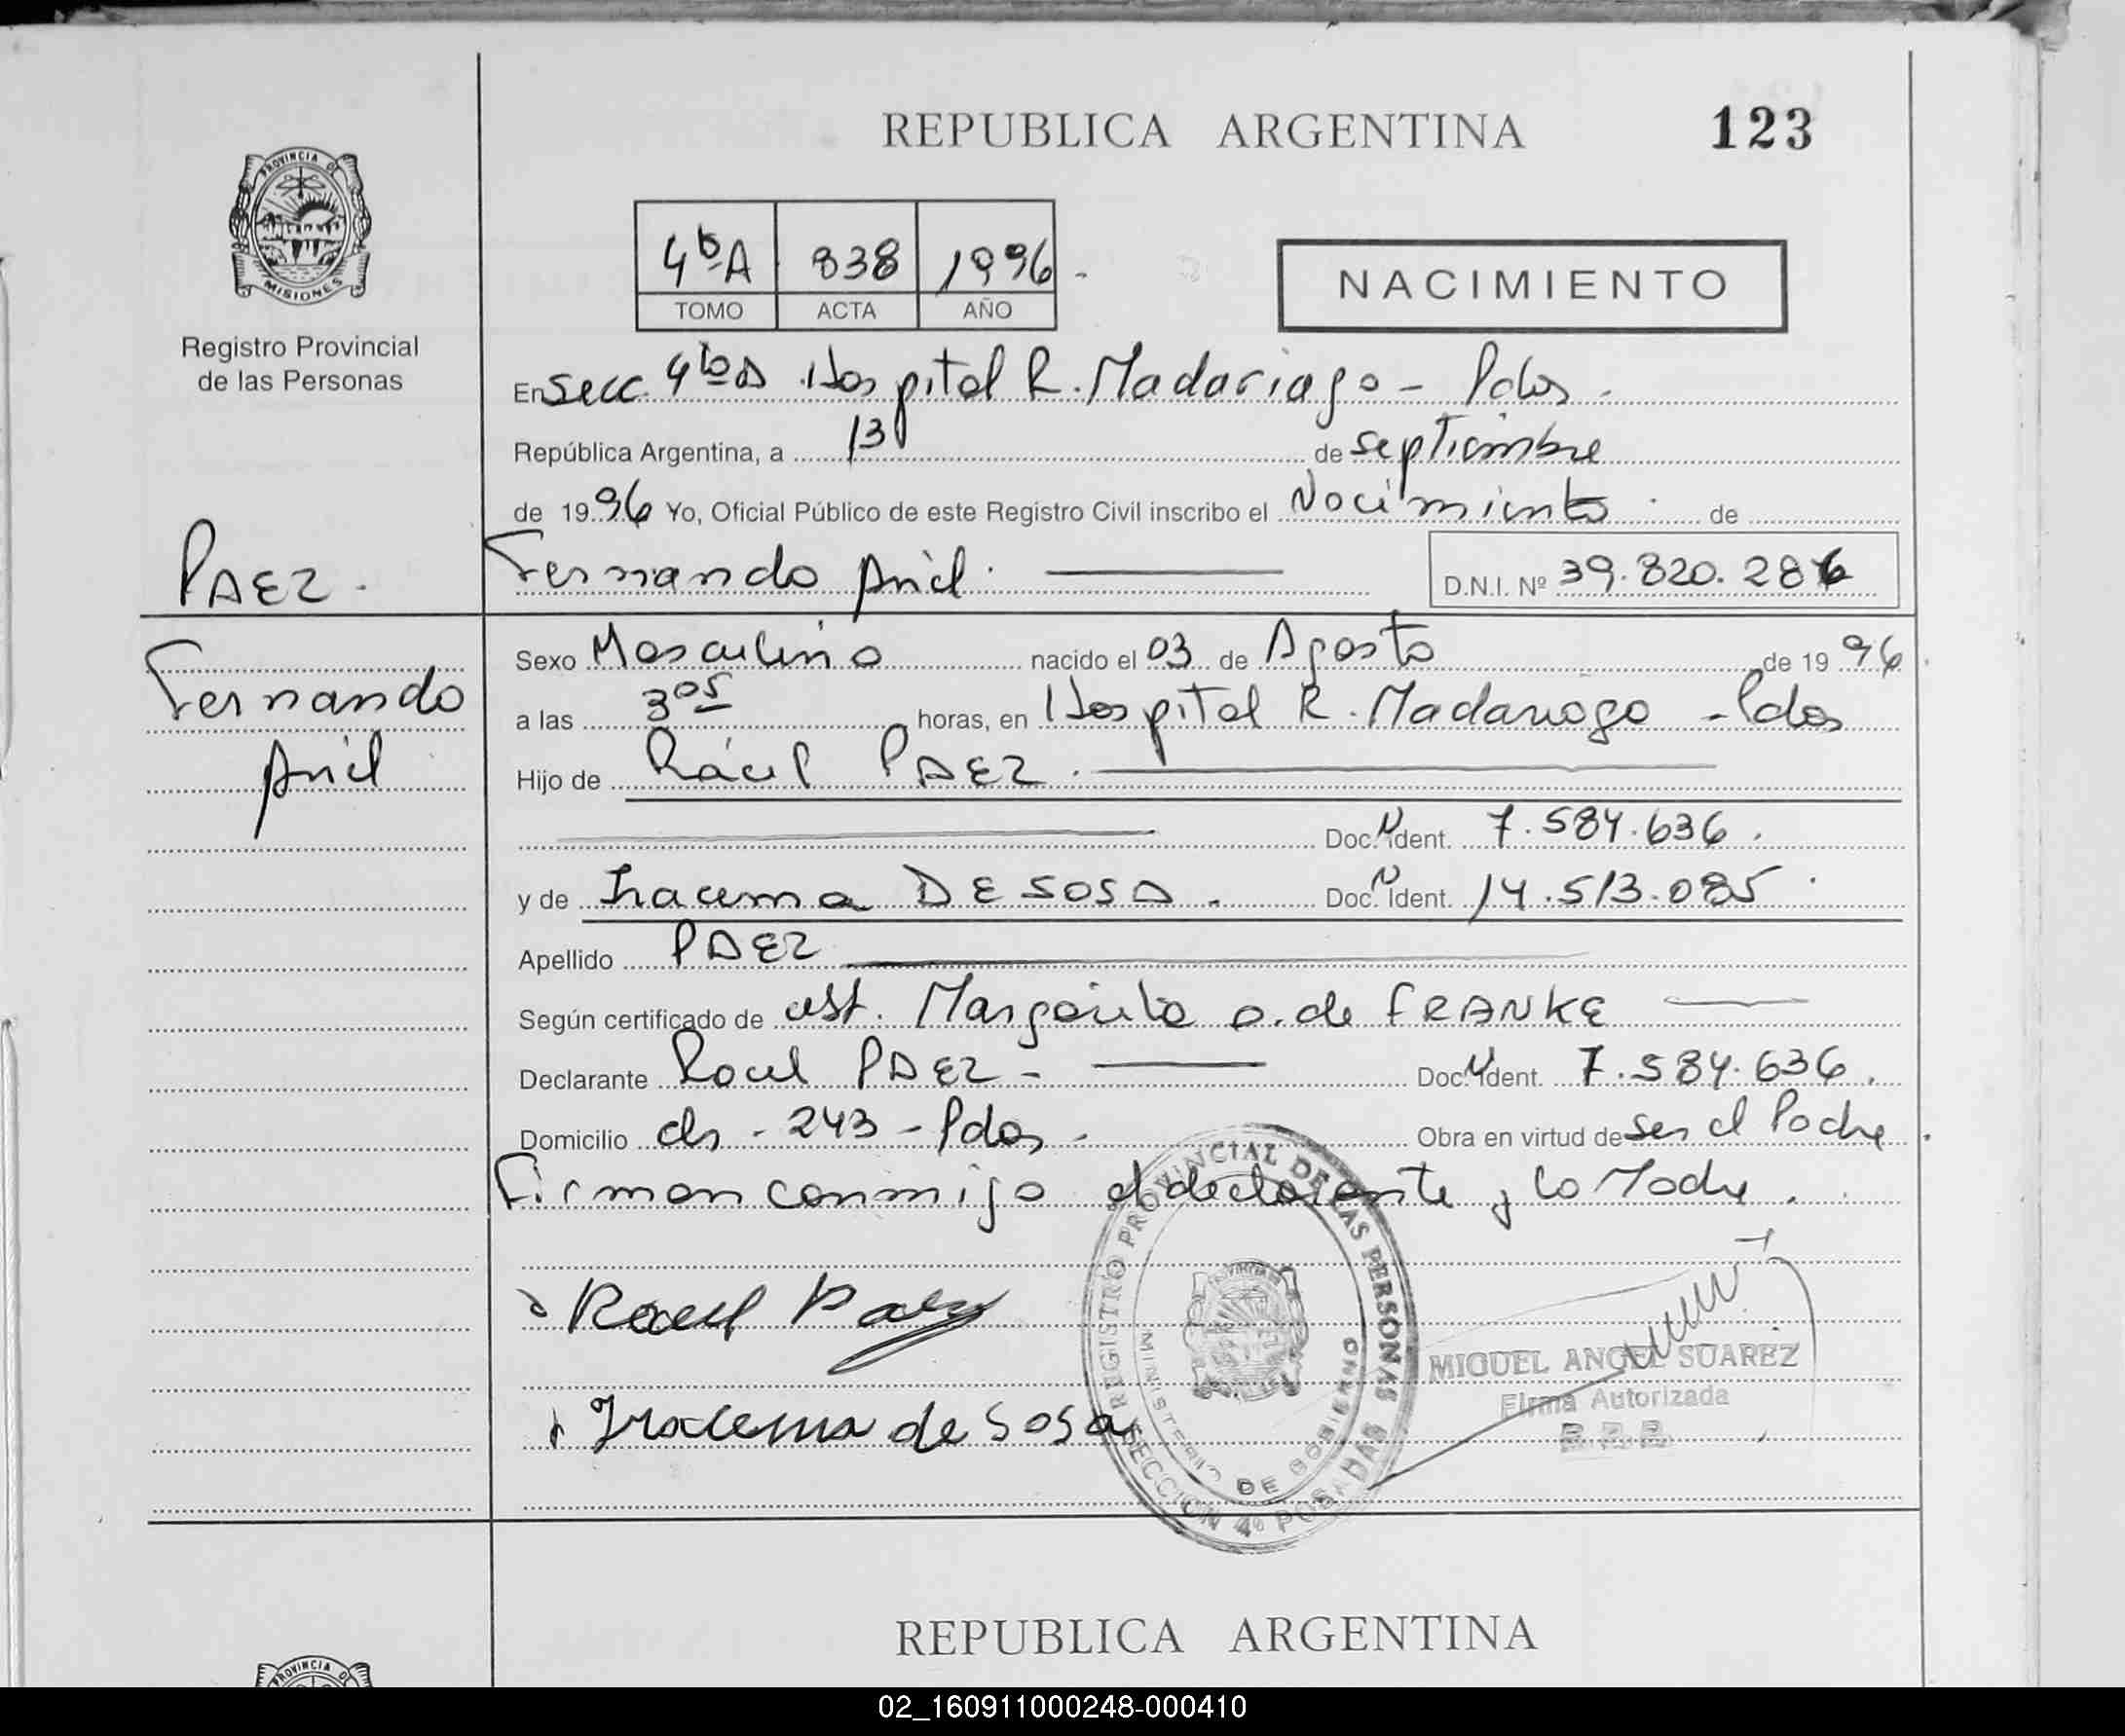 REPUBLICA ARGENTINA
123
PROVINCIA DE
MISIONES
Registro Provincial
de las Personas
4bA 838 1996
TOMO ACTA AÑO
NACIMIENTO
En Secc. 4bA Hospital R. Madariaga - Pdas.
República Argentina, a 13 de septiembre
de 1996 Yo, Oficial Público de este Registro Civil inscribo el Nacimiento de
PAEZ.
Fernando Ariel.
D.N.I. Nº 39.820.286
Fernando
Ariel
Sexo Masculino nacido el 03 de Agosto de 1996
a las 3 05 horas, en Hospital R. Madariaga - Pdas
Hijo de Rául PAEZ.
Doc. Ident. 7.584.636.
y de Iracema DE SOSA. Doc. Ident. 14.513.085.
Apellido PAEZ
Según certificado de obst. Margarita O. de FRANKE
Declarante Raul PAEZ - Doc. Ident. 7.584.636.
Domicilio 243 - Pdas - Obra en virtud de ser el Padre
Firman conmigo el declarante y la Madre.
Raul Paez
Iracema de Sosa
REGISTRO PROVINCIAL DE LAS PERSONAS
MINISTERIO DE GOBIERNO
SECCION 4º POSADAS
MIGUEL ANGEL SUAREZ
Firma Autorizada
REPUBLICA ARGENTINA
PROVINCIA DE
02_160911000248-000410